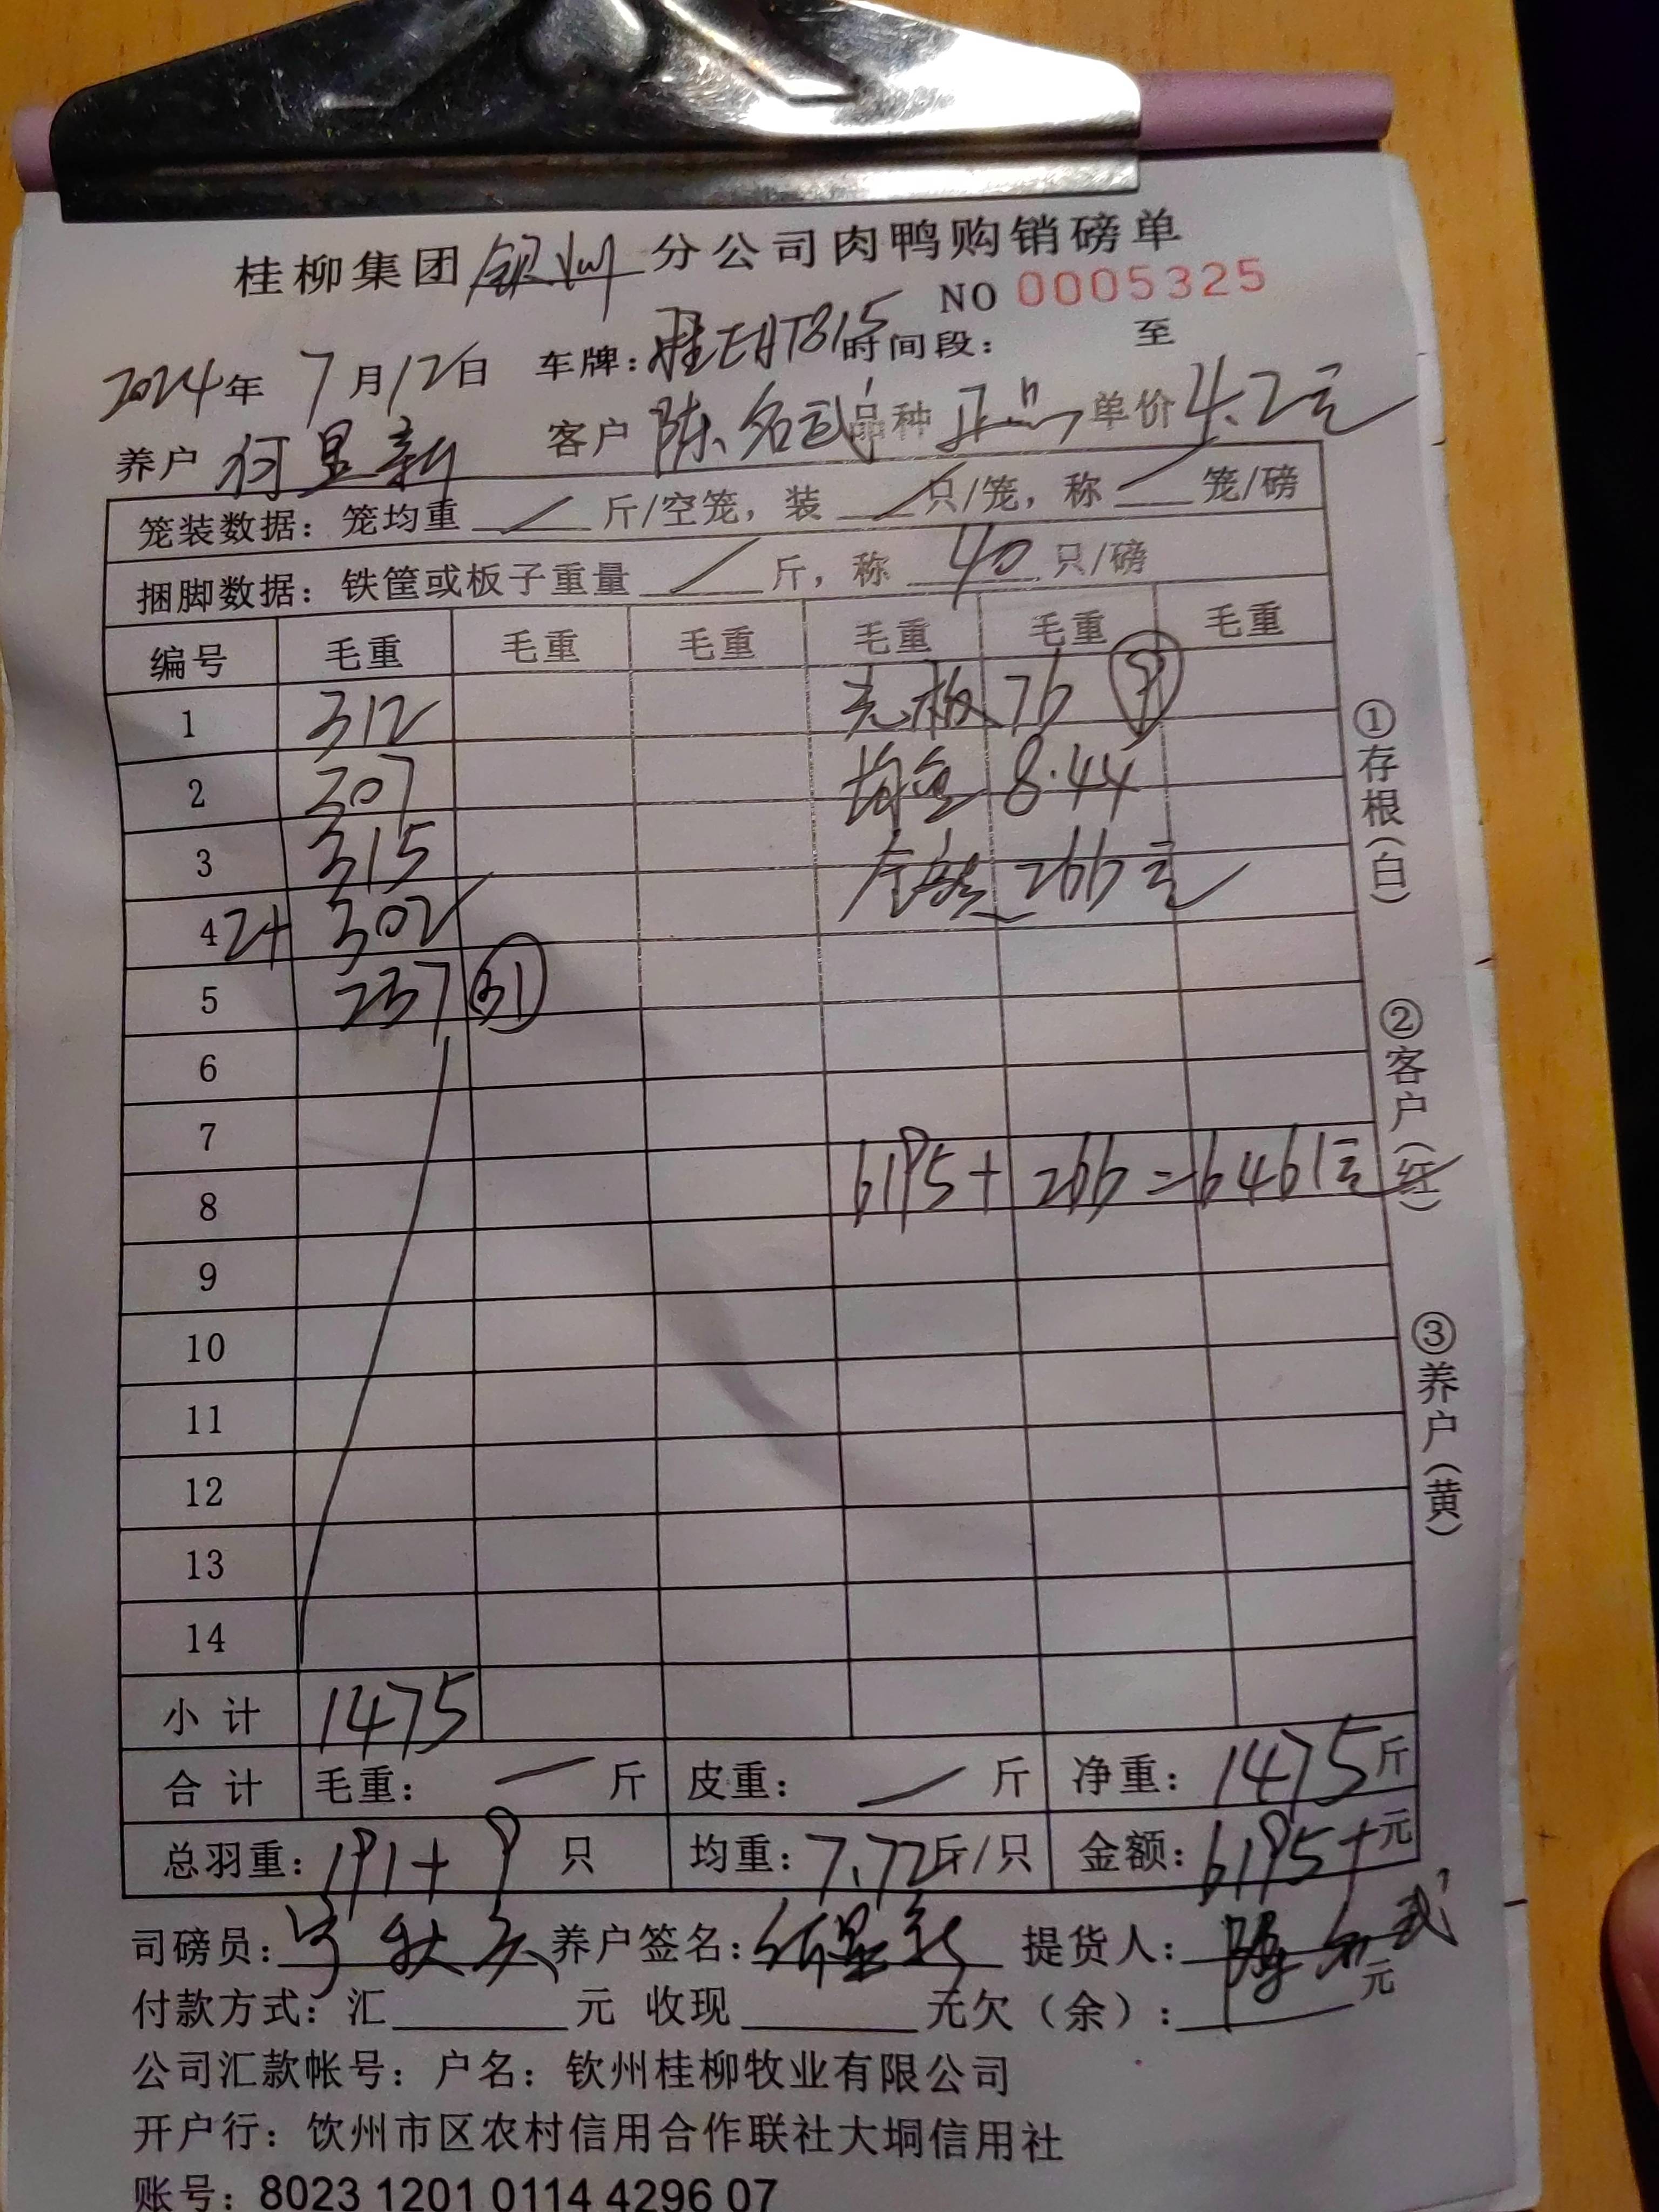 桂柳集团钦州分公司肉鸭购销磅单
NO 0005325
2024年 7月12日 车牌: 时间段: 至
养户 何显新 客户 陈名武 品种 正品 单价 4.2元
笼装数据: 笼均重 / 斤/空笼, 装 / 只/笼, 称 / 笼/磅
捆脚数据: 铁筐或板子重量 / 斤, 称 40 只/磅
编号 毛重 毛重 毛重 毛重 毛重 毛重
1 312 毛板 76 ⑨
2 307 均重 8.44
3 315 金额 266元
4 302
5 237 ㉛
6
7
8 6195+266=6461元
9
10
11
12
13
14
小计 1475
合计 毛重: — 斤 皮重: — 斤 净重: 1475斤
总羽重: 191+9 只 均重: 7.72斤/只 金额: 6195+元
司磅员: 养户签名: 何显新 提货人: 陈名武
付款方式: 汇 元 收现 元欠(余): 元
公司汇款帐号: 户名: 钦州桂柳牧业有限公司
开户行: 饮州市区农村信用合作联社大垌信用社
账号: 8023 1201 0114 4296 07
①存根(白)
②客户(红)
③养户(黄)